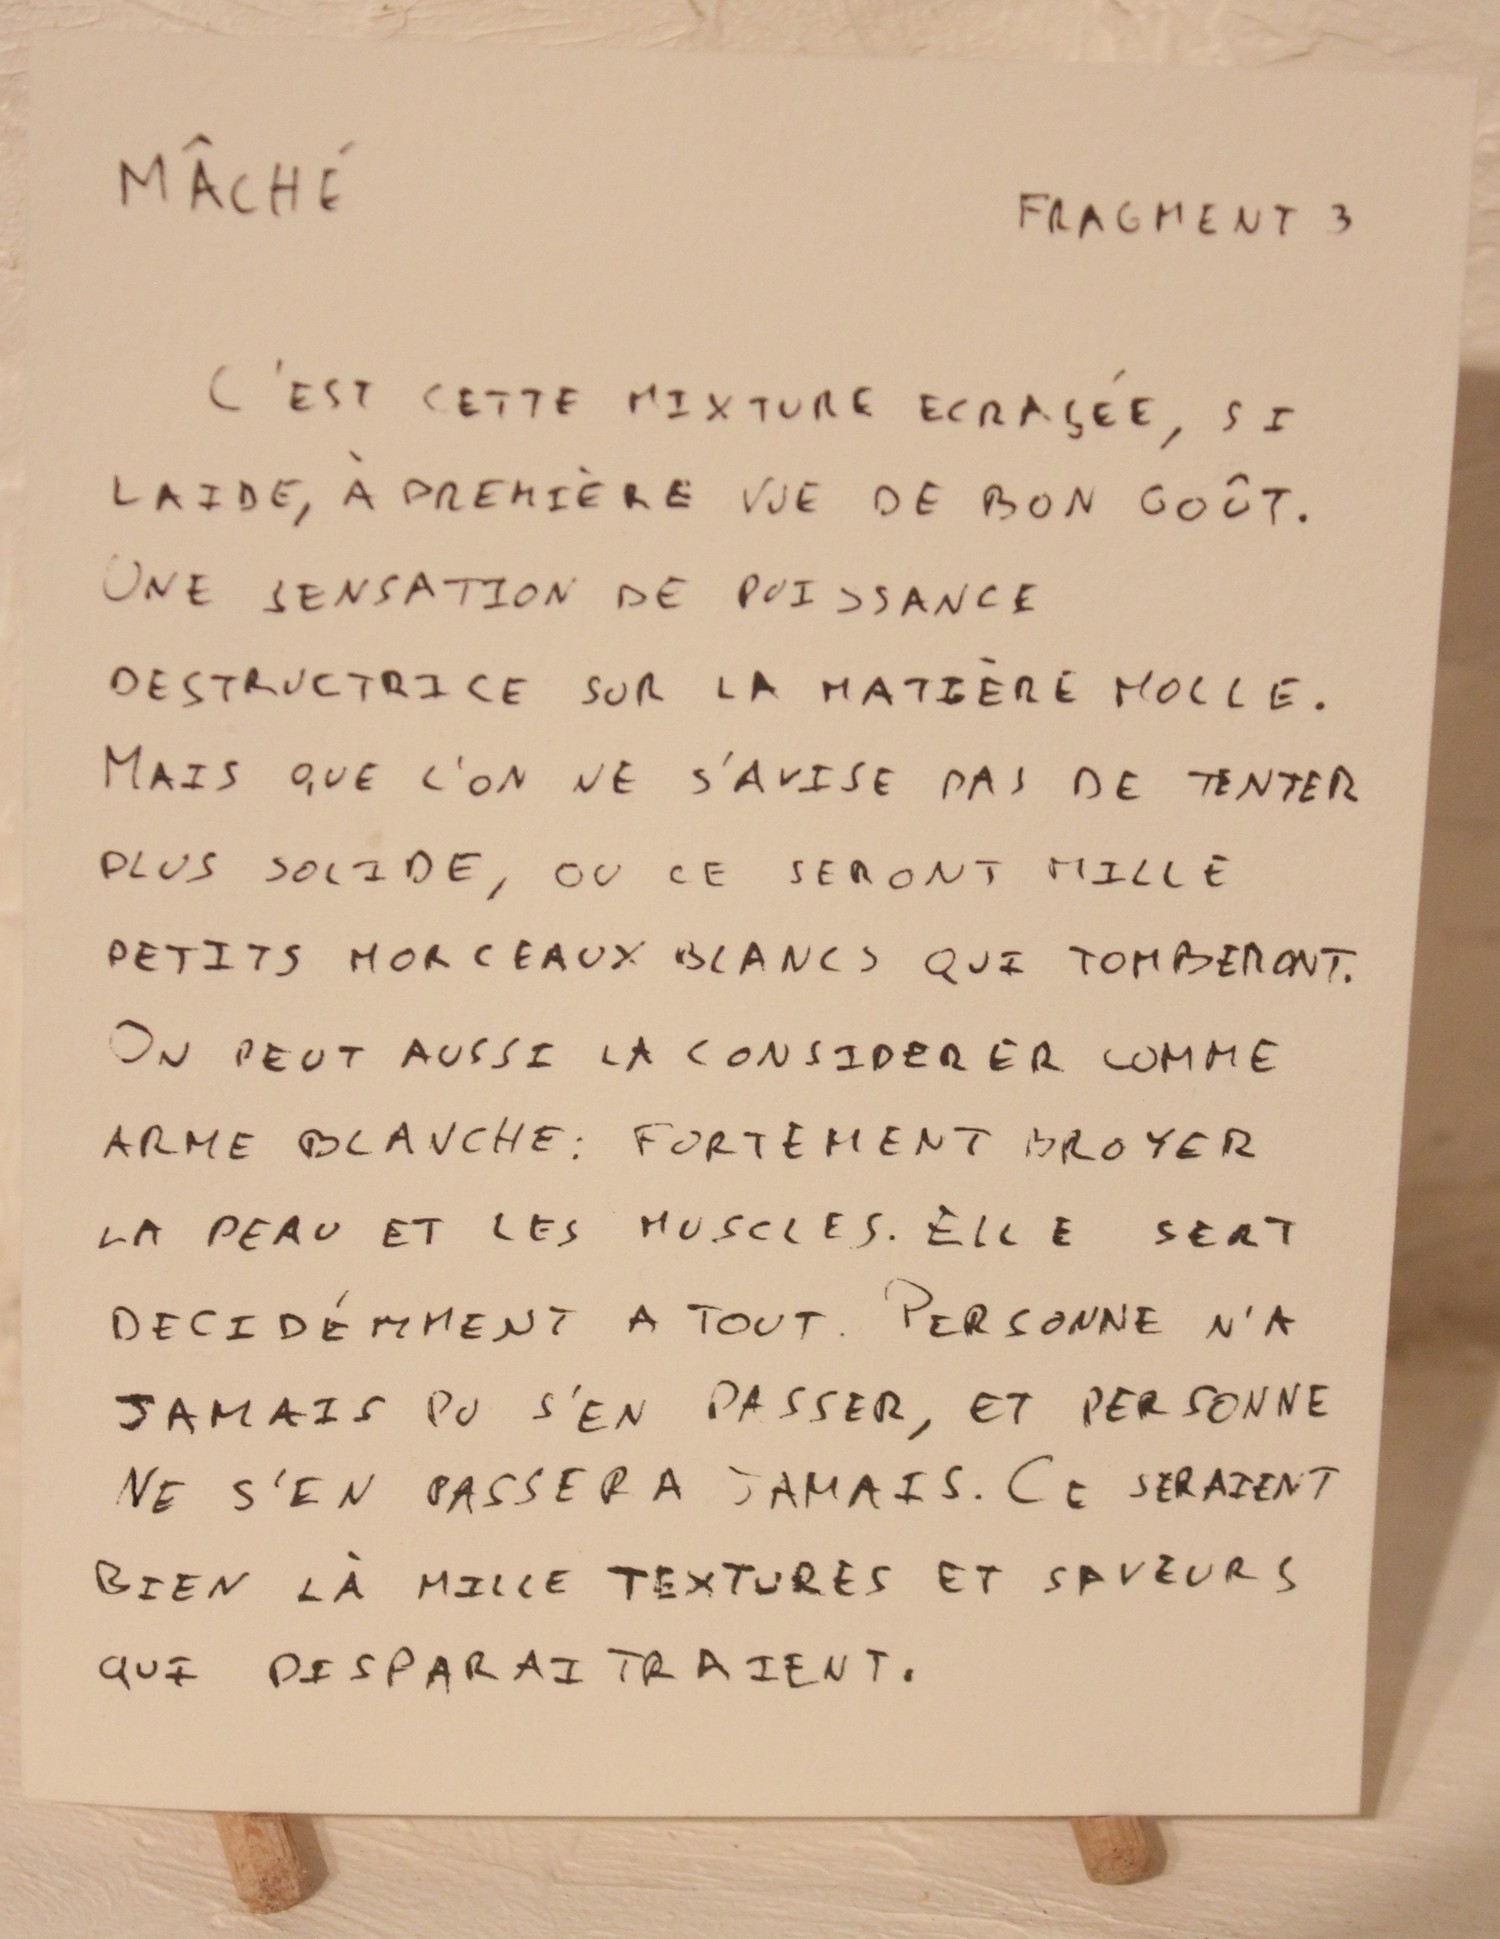 MÂCHÉ
FRAGMENT 3
C'EST CETTE MIXTURE ECRASÉE, SI
LAIDE, À PREMIÈRE VUE DE BON GOÛT.
UNE SENSATION DE PUISSANCE
DESTRUCTRICE SUR LA MATIÈRE MOLLE.
MAIS QUE L'ON NE S'AVISE PAS DE TENTER
PLUS SOLIDE, OU CE SERONT MILLE
PETITS MORCEAUX BLANCS QUI TOMBERONT.
ON PEUT AUSSI LA CONSIDERER COMME
ARME BLANCHE: FORTEMENT BROYER
LA PEAU ET LES MUSCLES. ELLE SERT
DECIDÉMMENT A TOUT. PERSONNE N'A
JAMAIS PU S'EN PASSER, ET PERSONNE
NE S'EN PASSERA JAMAIS. CE SERAIENT
BIEN LÀ MILLE TEXTURES ET SAVEURS
QUI DISPARAITRAIENT.